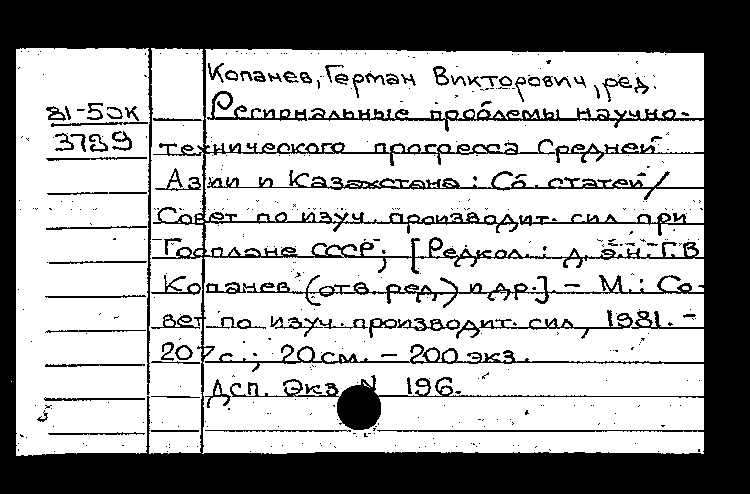 Копанев, Герман Викторович, ред.
81-5ЭК
Региональные проблемы научно-
3789
технического прогресса Средней
Азии и Казахстана: Сб. статей /
Совет по изуч. производит. сил при
Госплане СССР; [Редкол.: д. э. н. Г.В
Копанев (отв. ред.) и др.]. – М.: Со-
вет по изуч. производит. сил, 1981. –
207 с.; 20 см. – 200 экз.
Дсп. Экз N 196.